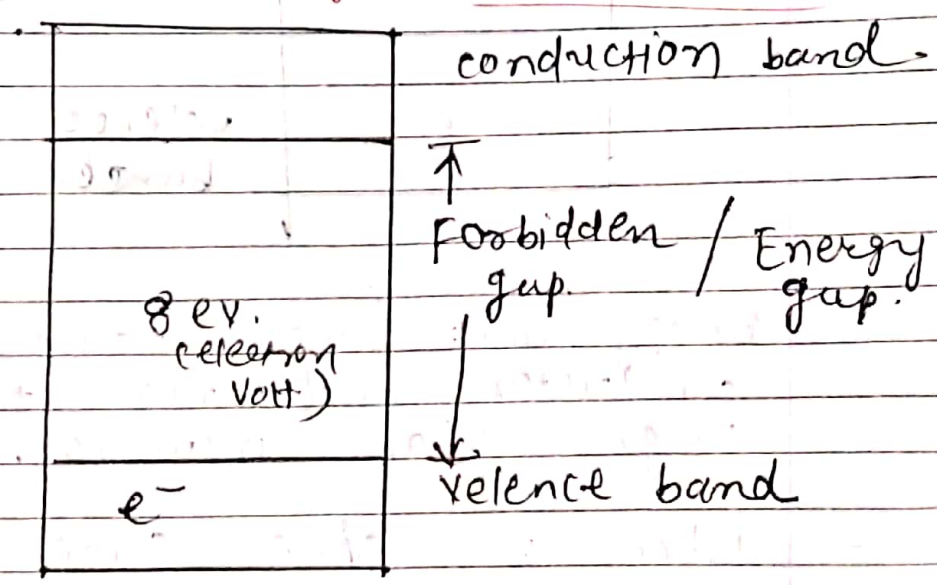 conduction band.
Forbidden / Energy
gap. gap.
8 ev.
(electron
Volt)
e⁻
Velence band